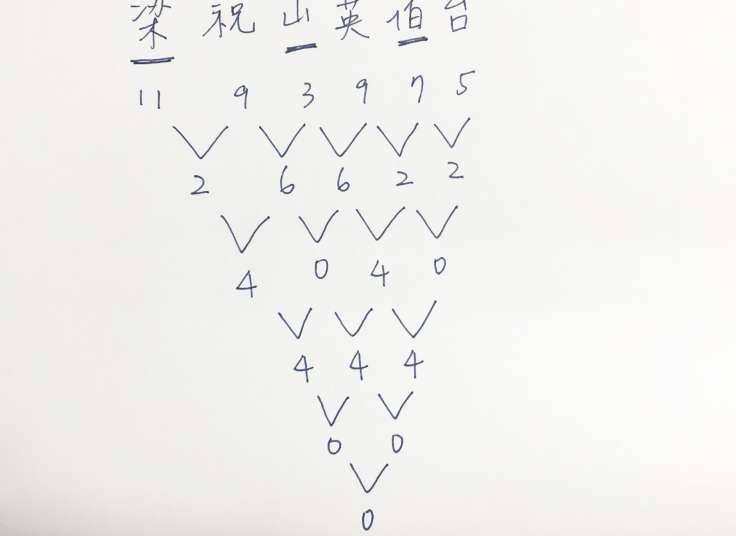 梁 祝 山 英 伯 台
11 9 3 9 7 5
2 6 6 2 2
4 0 4 0
4 4 4
0 0
0